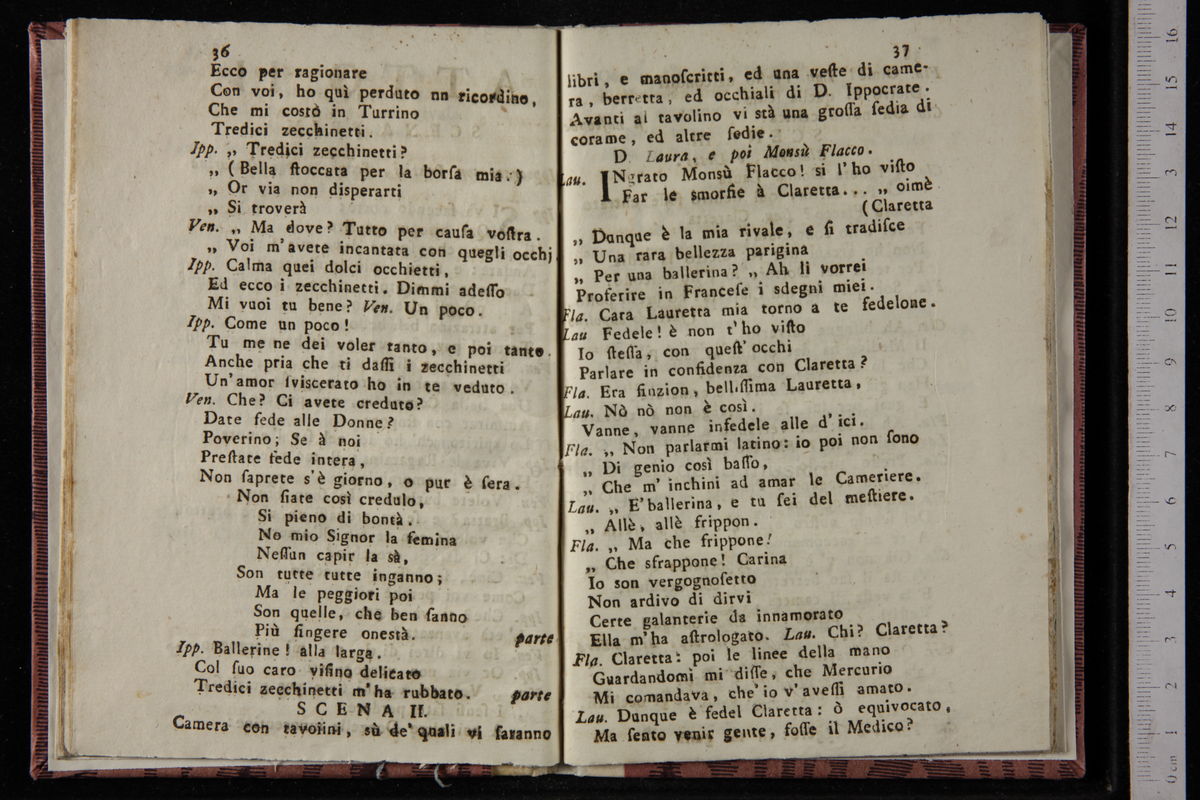 36
Ecco per ragionare
Con voi, ho quì perduto nn ricordino,
Che mi costò in Turrino
Tredici zecchinetti.
Ipp. „ Tredici zecchinetti?
„ ( Bella ſtoccata per la borſa mia. )
„ Or via non disperarti
„ Si troverà
Ven. „ Ma dove? Tutto per cauſa voſtra.
„ Voi m'avete incantata con quegli occhj
Ipp. Calma quei dolci occhietti,
Ed ecco i zecchinetti. Dimmi adeſſo
Mi vuoi tu bene? Ven. Un poco.
Ipp. Come un poco!
Tu me ne dei voler tanto, e poi tanto.
Anche pria che ti daſſi i zecchinetti
Un'amor ſviscerato ho in te veduto.
Ven. Che? Ci avete creduto?
Date fede alle Donne?
Poverino; Se à noi
Preſtate fede intera,
Non ſaprete s'è giorno, o pur è ſera.
Non ſiate così credulo,
Si pieno di bontà.
No mio Signor la femina
Neſſun capir la sà,
Son tutte tutte inganno;
Ma le peggiori poi
Son quelle, che ben ſanno
Più fingere onestà. parte
Ipp. Ballerine! alla larga.
Col ſuo caro viſino delicato
Tredici zecchinetti m'ha rubbato. parte
SCENA II.
Camera con tavolini, sù de' quali vi ſaranno
37
libri, e manoſcritti, ed una veſte di came-
ra, berretta, ed occhiali di D. Ippocrate.
Avanti al tavolino vi stà una groſſa ſedia di
corame, ed altre ſedie.
D. Laura, e poi Monsù Flacco.
Lau. INgrato Monsù Flacco! si l'ho viſto
Far le smorfie à Claretta... „ oimè
(Claretta
„ Dunque è la mia rivale, e ſi tradiſce
„ Una rara bellezza parigina
„ Per una ballerina? „ Ah li vorrei
Proferire in Franceſe i sdegni miei.
Fla. Cara Lauretta mia torno a te fedelone.
Lau Fedele! è non t'ho viſto
Io ſteſſa, con queſt' occhi
Parlare in confidenza con Claretta?
Fla. Era finzion, belliſſima Lauretta,
Lau. Nò nò non è così.
Vanne, vanne infedele alle d'ici.
Fla. „ Non parlarmi latino: io poi non ſono
„ Di genio così baſſo,
„ Che m' inchini ad amar le Cameriere.
Lau. „ E' ballerina, e tu ſei del meſtiere.
„ Allè, allè frippon.
Fla. „ Ma che frippone!
„ Che sfrappone! Carina
Io son vergognoſetto
Non ardivo di dirvi
Certe galanterie da innamorato
Ella m'ha aſtrologato. Lau. Chi? Claretta?
Fla. Claretta: poi le linee della mano
Guardandomi mi diſſe, che Mercurio
Mi comandava, che'io v'aveſſi amato.
Lau. Dunque è fedel Claretta: ò equivocato,
Ma ſento venir gente, foſſe il Medico?
16
15
14
13
12
11
10
9
8
7
6
5
4
3
2
1
0 cm